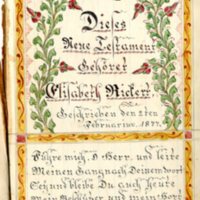 Dieses
Neue Testament
Gehöret
Elisabeth Rickert
Geschrieben den 2ten
Februarius 1877
Führe mich, O Herr, und leite
Meinen Gang nach Deinem Wort
Sei und bleibe Du auch heute
Mein Beschützer und mein Hort